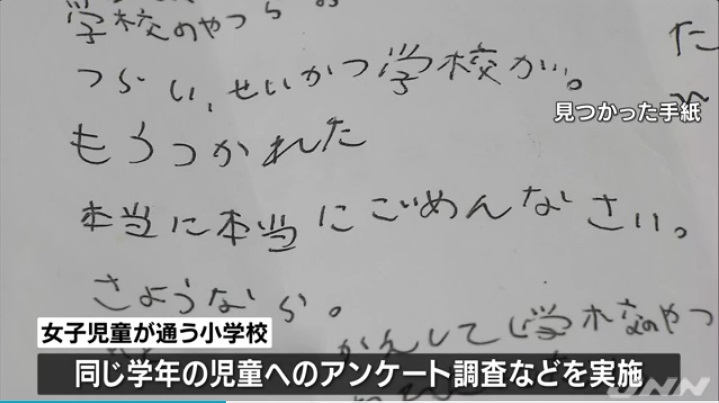 学校のやつら
つらい、せいかつ学校が。
もうつかれた
本当に本当にごめんなさい。
さようなら。
学校のやつ
た
見つかった手紙
女子児童が通う小学校
同じ学年の児童へのアンケート調査などを実施
JNN